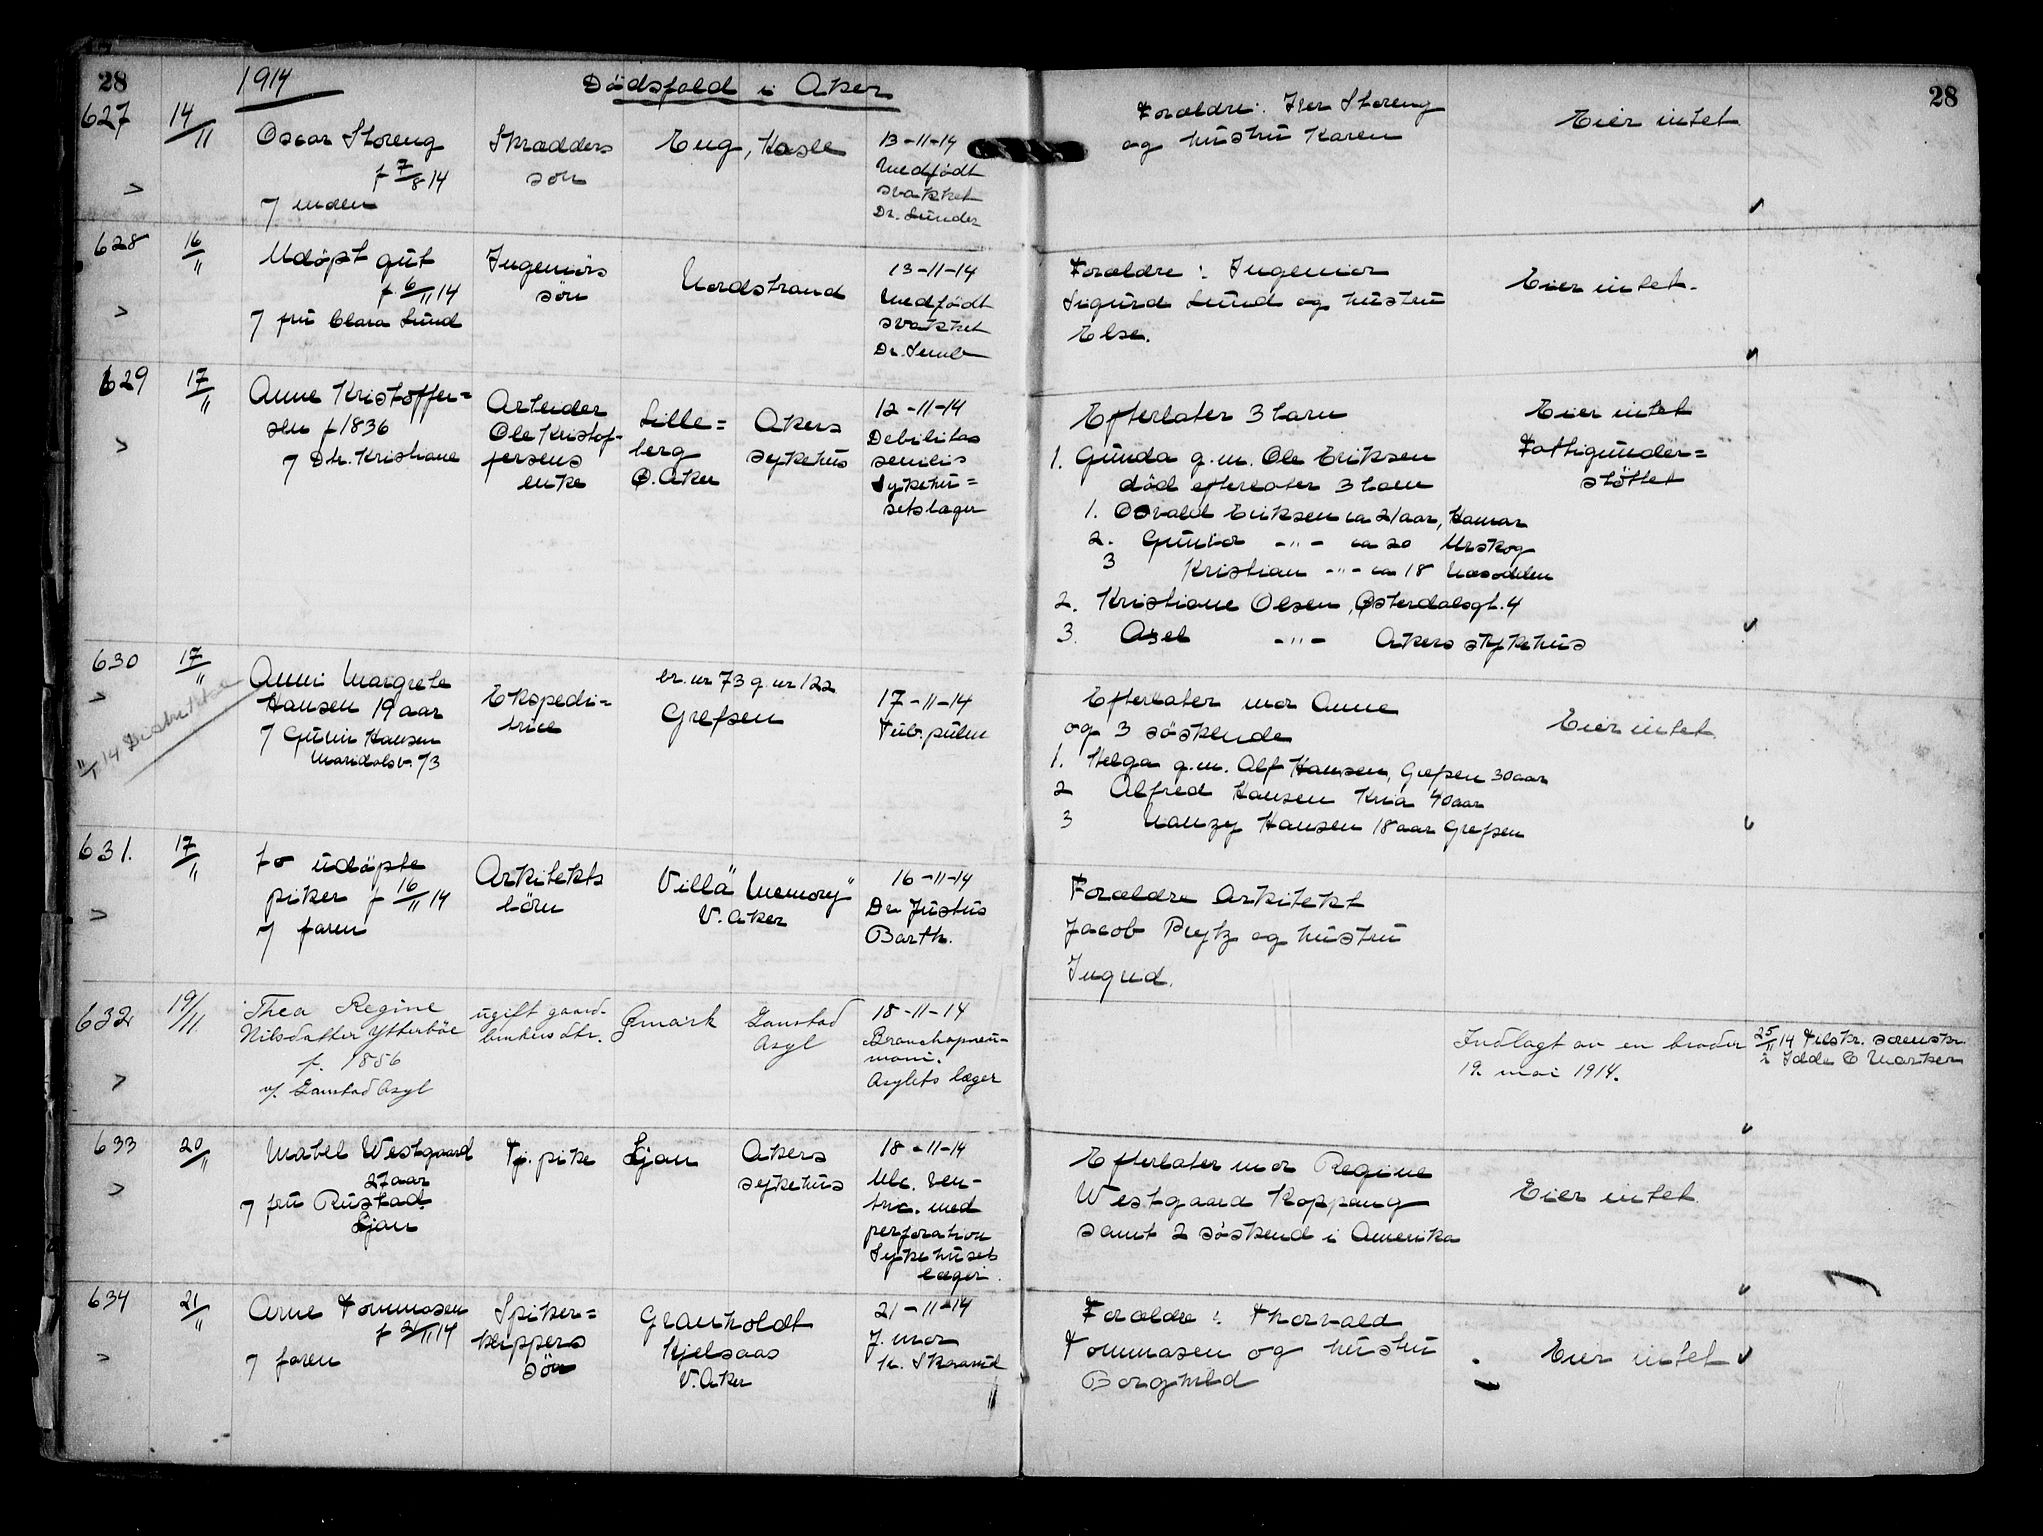 28
1914
Dödsfald i Aker
28
627
14/11
Oscar Storeng
f 7/8 14
Skrædders
sön
Eng, Hasle
13-11-14
Medfødt
svakhet
Dr. Sunder
Forældre: Iver Storeng
og hustru Karen
Eier intet
628
16/11
Udöpt gut
f. 6/11 14
7 fru Clara Lund
Ingeniörs
sön
Nordstrand
13-11-14
Medfödt
svakhet
Dr. Semb
Forældre: Ingeniör
Sigurd Lund og hustru
Else.
Eier intet.
629
17/11
Anne Kristoffer=
sen f 1836
7 Dtr. Kristiane
Arbeider
Ole Kristof-
fersens
enke
Lille=
berg
Ö. Aker
Akers
sykehus
12-11-14
Debilitas
senilis
Sykehu=
setslæger
Efterlater 3 barn
1. Gunda g.m. Ole Eriksen
död efterlater 3 barn
1. Osvald Eriksen ca 21 aar, Hamar
2. Gunvor -"- ca 20 Urskog
3 Kristian -"- ca 18 Næsodden
2. Kristiane Olsen, Østerdalsgt. 4
3. Axel -"- Akers sykehus
Eier intet
Fattigunder=
støttet
630
17/11
Anni Margrete
Hansen 19 aar
7 Gunvi Hansen
Maridalsv. 73
Ekspedi=
trice
br. nr 73 g. nr 122
Grefsen
17-11-14
Tub. pulm
Efterlater mor Anne
og 3 søskende
1. Helga g.m. Alf Hansen, Grefsen 30 aar
2 Alfred Hansen Kria 40 aar
3 Nanzy Hansen 18 aar Grefsen
Eier intet.
631.
17/11
to udöpte
piker f 16/11 14
7 faren
Arkitekts
börn
Villa "Memory"
V. Aker
16-11-14
Dr Justus
Barth.
Forældre Arkitekt
Jacob Prytz og hustru
Ingrid.
632
19/11
Thea Regine
Nilsdatter Ytterböe
f. 1856
v/ Gaustad Asyl
ugift gaard-
brukers dtr.
Ømark
Gaustad
Asyl
18-11-14
Bronchopneu-
moni.
Asylets læger
Indlagt av en broder
19. mai 1914.
25/11 14 tilskr. sorenskr.
i Idde & Marker
633
20/11
Mabel Westgaard
27 aar
7 fru Rustad
Ljan
Tj. pike
Ljan
Akers
sykehus
18-11-14
Ulc. ven-
tric. med
perforation
Sykehusets
læger.
Efterlater mor Regine
Westgaard Koppang
samt 2 søskend i Amerika
Eier intet.
634
21/11
Arne Tommasen
f 21/11 14
7 faren
Spiker=
klippers
sön
Granholdt
Kjelsaas
V. Aker
21-11-14
J. mor
K. Skaarud
Forældre: Thorvald
Tommasen og hustru
Borghild
Eier intet